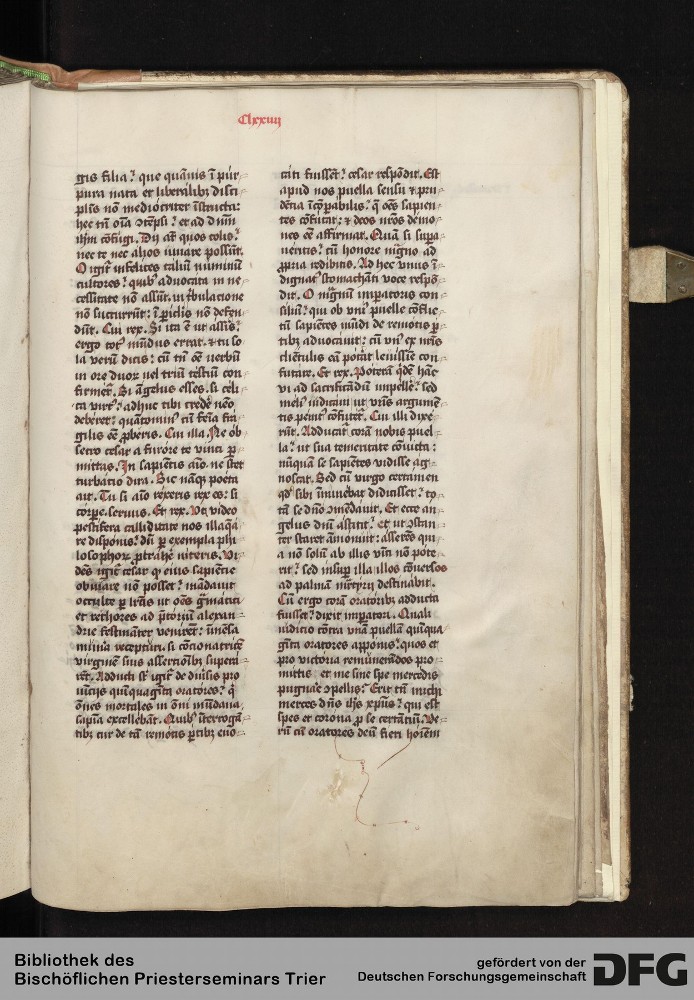 Clxxiiij
gis filia? que quāuis ī pur-
pura nata et liberalibꝫ disci-
plīs nō mediocriter īstructa:
hec tn̄ oīa ꝯtēpsi? et ad dn̄m
ihm̄ cōfugi. Dij aūt quos colis?
nec te nec alios iuuare possūt.
O igit᷑ infelices taliū numinū
cultores? quibꝰ aduocata in ne-
cessitate nō assūt. in tͥbulacione
nō succurrūt: ī piclīs nō defen-
dūt. Cui rex. Si ita ē ut assis?
ergo totꝰ mūdus errat. ⁊ tu so
la verū dicis: cū tn̄ oē verbū
in ore duoꝝ vel triū testiū con-
firmet᷑. Si āgelus esses. si celi-
ca virtꝰ? adhuc tibi crede᷑ nēo
deberet? quātominꝰ cū feīa fra-
gilis eē ꝓberis. Cui illa. Ne ob-
secro cesar a furore te vinci ꝑ-
mittas. In sapiētis aīo. ne stet
turbatio dira. Sic nāqꝫ poeta
ait. Tu si aīo rexeris rex es: si
corpe. seruus. Et rex. Vt video
pestifera calliditate nos illaq̄a-
re disponis? dū ꝑ exempla phi-
losophoꝝ ꝓtrahe᷑ niteris. Vi-
dēs igit᷑ cesar ꝙ eius sapiētie
obuiare nō posset? mādauit
occulte ꝑ lr̄as ut oēs gͣmatici
et rethores ad p̄toriū alexan-
drie festināter venirēt: īmēsa
mūa recepturi. si cōcionatricē
virginē suis assercionibꝫ supera-
rēt. Adducti sūt igit᷑ de diuīsis pro
uīcijs quīquagīta oratores? qͥ
ōnes mortales in ōni mūdana
sapīa excellebāt. Quibꝰ īterrogā-
tibꝫ cur de tā remotis ꝑtibꝫ euo-
cati fuissēt? cesar respōdit. Est
apud nos puella sensu ⁊ pru-
dētia īcōꝑabilis? q̄ oēs sapien-
tes cōfutat: ⁊ deos nr̄os demo-
nes eē affirmat. Quā si supa-
ueritis? cū honore māgno ad
ꝓpria redibitis. Ad hec vnus ī-
dignatꝰ stomachāti voce respō-
dit. O māgnū imperatoris con-
siliū? qui ob vniꝰ puelle cōflic-
tū sapiētes mūdi de remotis ꝑ-
tibꝫ aduocauit: cū vnꝰ ex nr̄is
cliētulis eā potuit leuissime con-
futare. Et rex. Poterā qͥdē hāc
vi ad sacrificādū impelle᷑? sed
meliꝰ iudicaui ut vr̄is argumē-
tis penitꝰ cōfutet᷑. Cui illi dixe-
rūt. Adducat᷑ corā nobis puel-
la? ut sua temeritate cōuicta:
nūquā se sapiētes vidisse ag-
noscat. Sed cū virgo certamen
qd̓ sibi īminebat didicisset? to-
tā se dn̄o ꝯmēdauit. Et ecce an-
gelus dn̄i astitit? et ut ꝯstan-
ter staret āmonuit: asserēs qͥ
a nō solū ab illis vīci nō pote-
rit? sed insuꝑ illa illos cōuersos
ad palmā martyrij destinabit.
Cū ergo corā oratoribꝫ adducta
fuisset? dixit impatori. Quali
iudicio cōtra vnā puellā quīqua-
gīta oratores apponis? quos et
pro victoria remunerādos pro-
mittis et me sine spe mercedis
pugnare ꝯpellis? Erit tn̄ michi
merces dn̄s ihs xpūs? qui est
spes et corona ꝓ se certātiū. Ve-
rū cū oratores deū fieri hoīem
Bibliothek des
Bischöflichen Priesterseminars Trier
gefördert von der
Deutschen Forschungsgemeinschaft
DFG